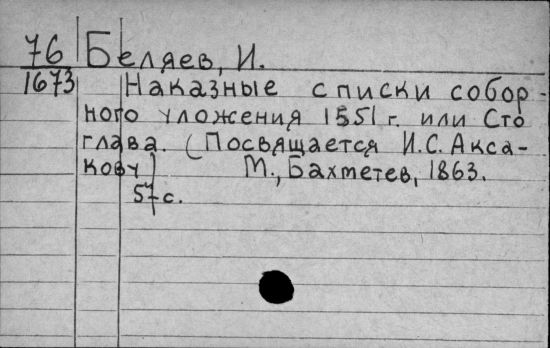 76 Беляев, И.
1673 Наказные списки собор-
ного уложения 1551 г. или Сто
глава. (Посвящается И.С. Акса-
кову) М., Бахметев, 1863.
57 с.